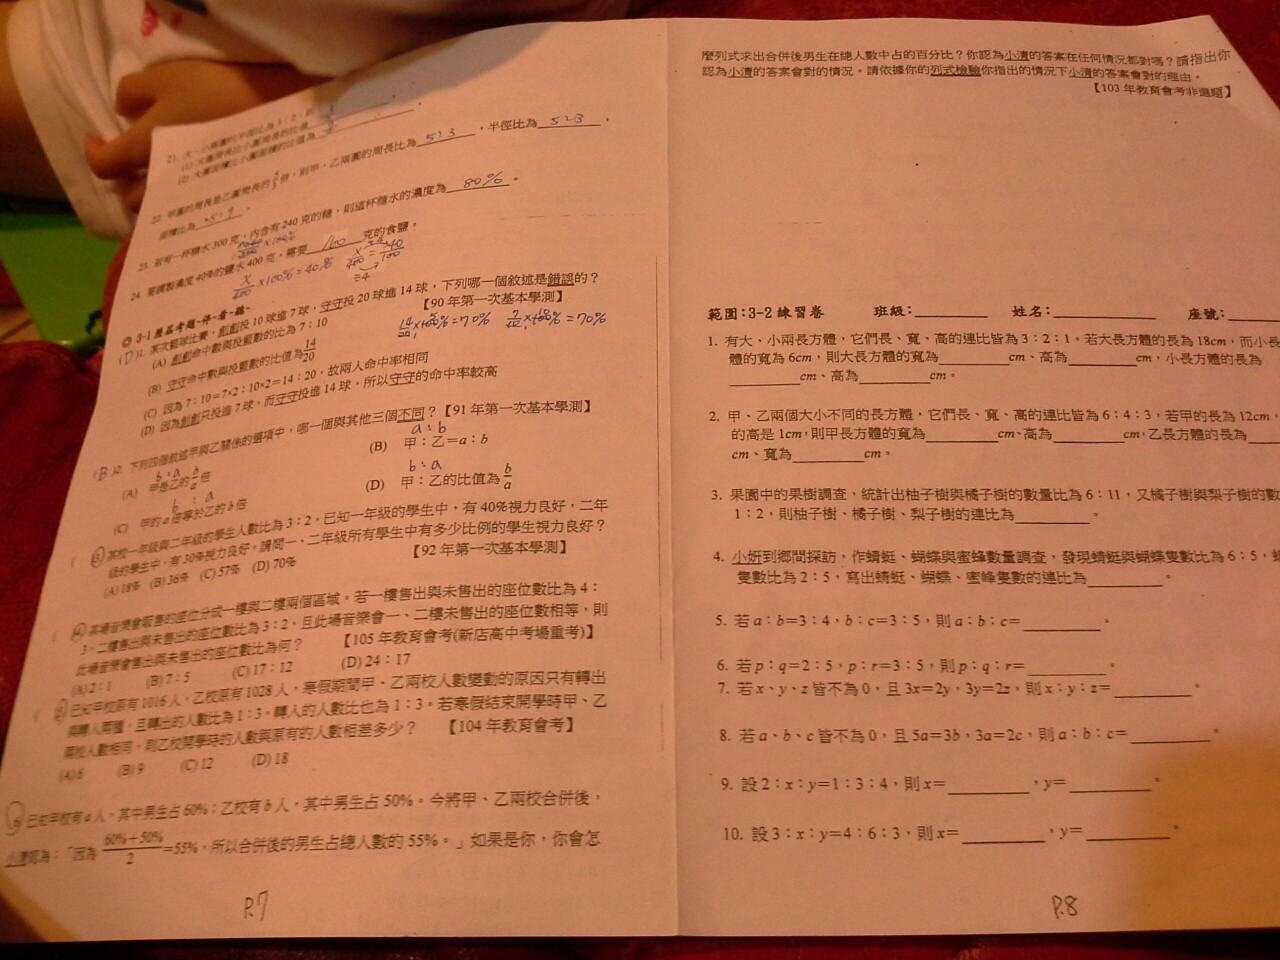 21. 大、小兩圓的半徑比為
(1) 大圓周長比小圓周長的比值
(2) 大圓面積比小圓面積的比值為
22. 甲圓的周長是乙圓周長的 5/3 倍,則甲、乙兩圓的周長比為 5:3 ,半徑比為 5:3 ,
面積比為 25:9 。
23. 若有一杯糖水 300 克,內含有 240 克的糖,則這杯糖水的濃度為 80% 。
24. 要調製濃度 40%的鹽水 400 克,需要 160 克的食鹽。
x/400 ×100%=40% x/400=40/100
◎ 3-1 歷屆考題-停-看-聽-
(D)1. 某次籃球比賽,創創投 10 球進 7 球,守守投 20 球進 14 球,下列哪一個敘述是錯誤的?
【90 年第一次基本學測】
14/20×100%=70% 7/10×100%=70%
(A) 創創命中數與投籃數的比為 7:10
(B) 守守命中數與投籃數的比值為 14/20
(C) 因為 7:10=7×2:10×2=14:20,故兩人命中率相同
(D) 因為創創只投進 7 球,而守守投進 14 球,所以守守的命中率較高
(B)2. 下列四個敘述甲與乙關係的選項中,哪一個與其他三個不同?【91 年第一次基本學測】
b:a a:b
(A) 甲是乙的 b/a 倍 (B) 甲:乙=a:b
b:a b:a
(C) 甲的 a 倍等於乙的 b 倍 (D) 甲:乙的比值為 b/a
( )3. 某校一年級與二年級的學生人數比為 3:2,已知一年級的學生中,有 40%視力良好,二年
級的學生中,有 30%視力良好。請問一、二年級所有學生中有多少比例的學生視力良好?
(A) 18% (B) 36% (C) 57% (D) 70% 【92 年第一次基本學測】
( )4. 某場音樂會販售的座位分成一樓與二樓兩個區域。若一樓售出與未售出的座位數比為 4:
3,二樓售出與未售出的座位數比為 3:2,且此場音樂會一、二樓未售出的座位數相等,則
此場音樂會售出與未售出的座位數比為何? 【105 年教育會考(新店高中考場重考)】
(A) 2:1 (B) 7:5 (C) 17:12 (D) 24:17
( )5. 已知甲校原有 1016 人,乙校原有 1028 人,寒假期間甲、乙兩校人數變動的原因只有轉出
與轉入兩種,且轉出的人數比為 1:3,轉入的人數比也為 1:3。若寒假結束開學時甲、乙
兩校人數相同,則乙校開學時的人數與原有的人數相差多少? 【104 年教育會考】
(A) 6 (B) 9 (C) 12 (D) 18
6. 已知甲校有 a 人,其中男生占 60%;乙校有 b 人,其中男生占 50%。今將甲、乙兩校合併後,
小清認為:「因為 60%+50%/2=55%,所以合併後的男生占總人數的 55%。」如果是你,你會怎
P.7
麼列式求出合併後男生在總人數中占的百分比?你認為小清的答案在任何情況都對嗎?請指出你
認為小清的答案會對的情況。請依據你的列式檢驗你指出的情況下小清的答案會對的理由。
【103 年教育會考非選題】
範圍:3-2 練習卷 班級: 姓名: 座號:
1. 有大、小兩長方體,它們長、寬、高的連比皆為 3:2:1。若大長方體的長為 18cm,而小長
體的寬為 6cm,則大長方體的寬為 cm、高為 cm,小長方體的長為
cm、高為 cm。
2. 甲、乙兩個大小不同的長方體,它們長、寬、高的連比皆為 6:4:3,若甲的長為 12cm,
的高是 1cm,則甲長方體的寬為 cm、高為 cm,乙長方體的長為
cm、寬為 cm。
3. 果園中的果樹調查,統計出柚子樹與橘子樹的數量比為 6:11,又橘子樹與梨子樹的數
1:2,則柚子樹、橘子樹、梨子樹的連比為 。
4. 小妍到鄉間探訪,作蜻蜓、蝴蝶與蜜蜂數量調查,發現蜻蜓與蝴蝶隻數比為 6:5,
隻數比為 2:5,寫出蜻蜓、蝴蝶、蜜蜂隻數的連比為 。
5. 若 a:b=3:4,b:c=3:5,則 a:b:c= 。
6. 若 p:q=2:5,p:r=3:5,則 p:q:r= 。
7. 若 x、y、z 皆不為 0,且 3x=2y,3y=2z,則 x:y:z= 。
8. 若 a、b、c 皆不為 0,且 5a=3b,3a=2c,則 a:b:c= 。
9. 設 2:x:y=1:3:4,則 x= ,y= 。
10. 設 3:x:y=4:6:3,則 x= ,y= 。
P.8